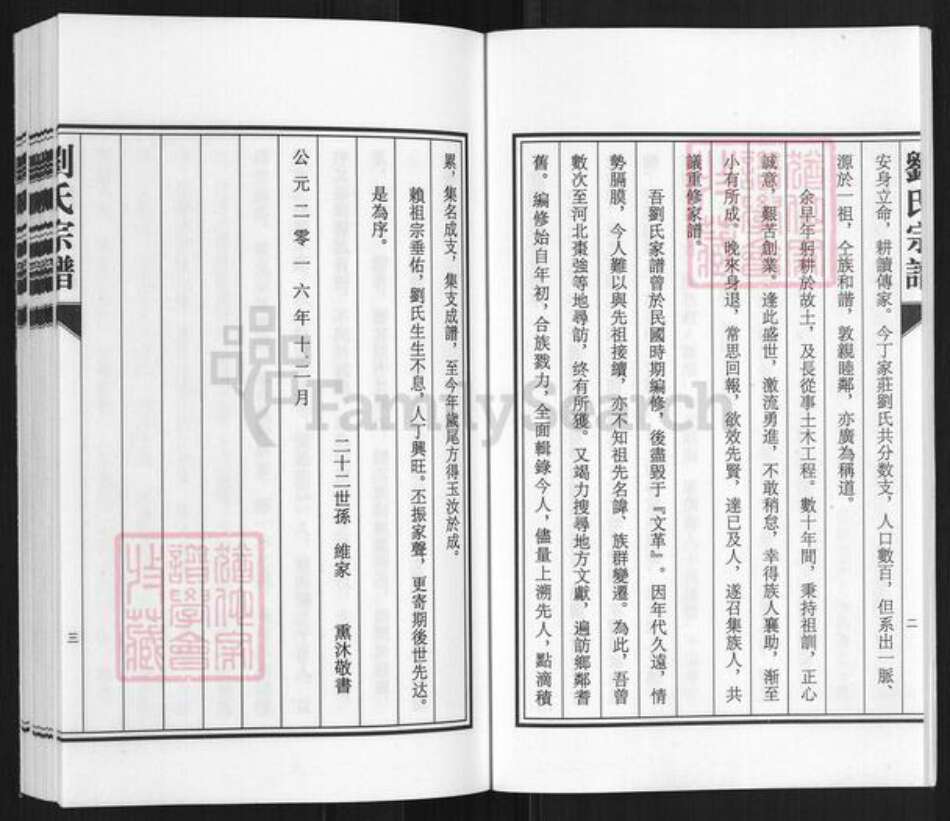 劉氏宗譜
二
安身立命，耕讀傳家。今丁家莊劉氏共分数支，人口數百，但系出一脈、
源於一祖，仝族和諧，敦親睦鄰，亦廣為稱道。
余早年躬耕於故土，及長從事土木工程。數十年間，秉持祖訓，正心
誠意，艱苦創業。逢此盛世，激流勇進，不敢稍怠，幸得族人襄助，漸至
小有所成。晚來身退，常思回報，欲效先賢，達已及人，遂召集族人，共
議重修家譜。
吾劉氏家譜曾於民國時期編修，後盡毀于『文革』。因年代久遠，情
勢膈膜，今人難以與先祖接續，亦不知祖先名諱、族群變遷。為此，吾曾
數次至河北棗強等地尋訪，终有所獲。又竭力搜尋地方文獻，遍訪鄉鄰耆
舊。編修始自年初，合族戮力，全面輯錄今人，儘量上溯先人，點滴積
累，集名成支，集支成譜，至今年歲尾方得玉汝於成。
賴祖宗垂佑，劉氏生生不息，人丁興旺。丕振家聲，更寄期後世先达。
是為序。
二十二世孫 維家 熏沐敬書
公元二零一六年十二月
劉氏宗譜
三
FamilySearch